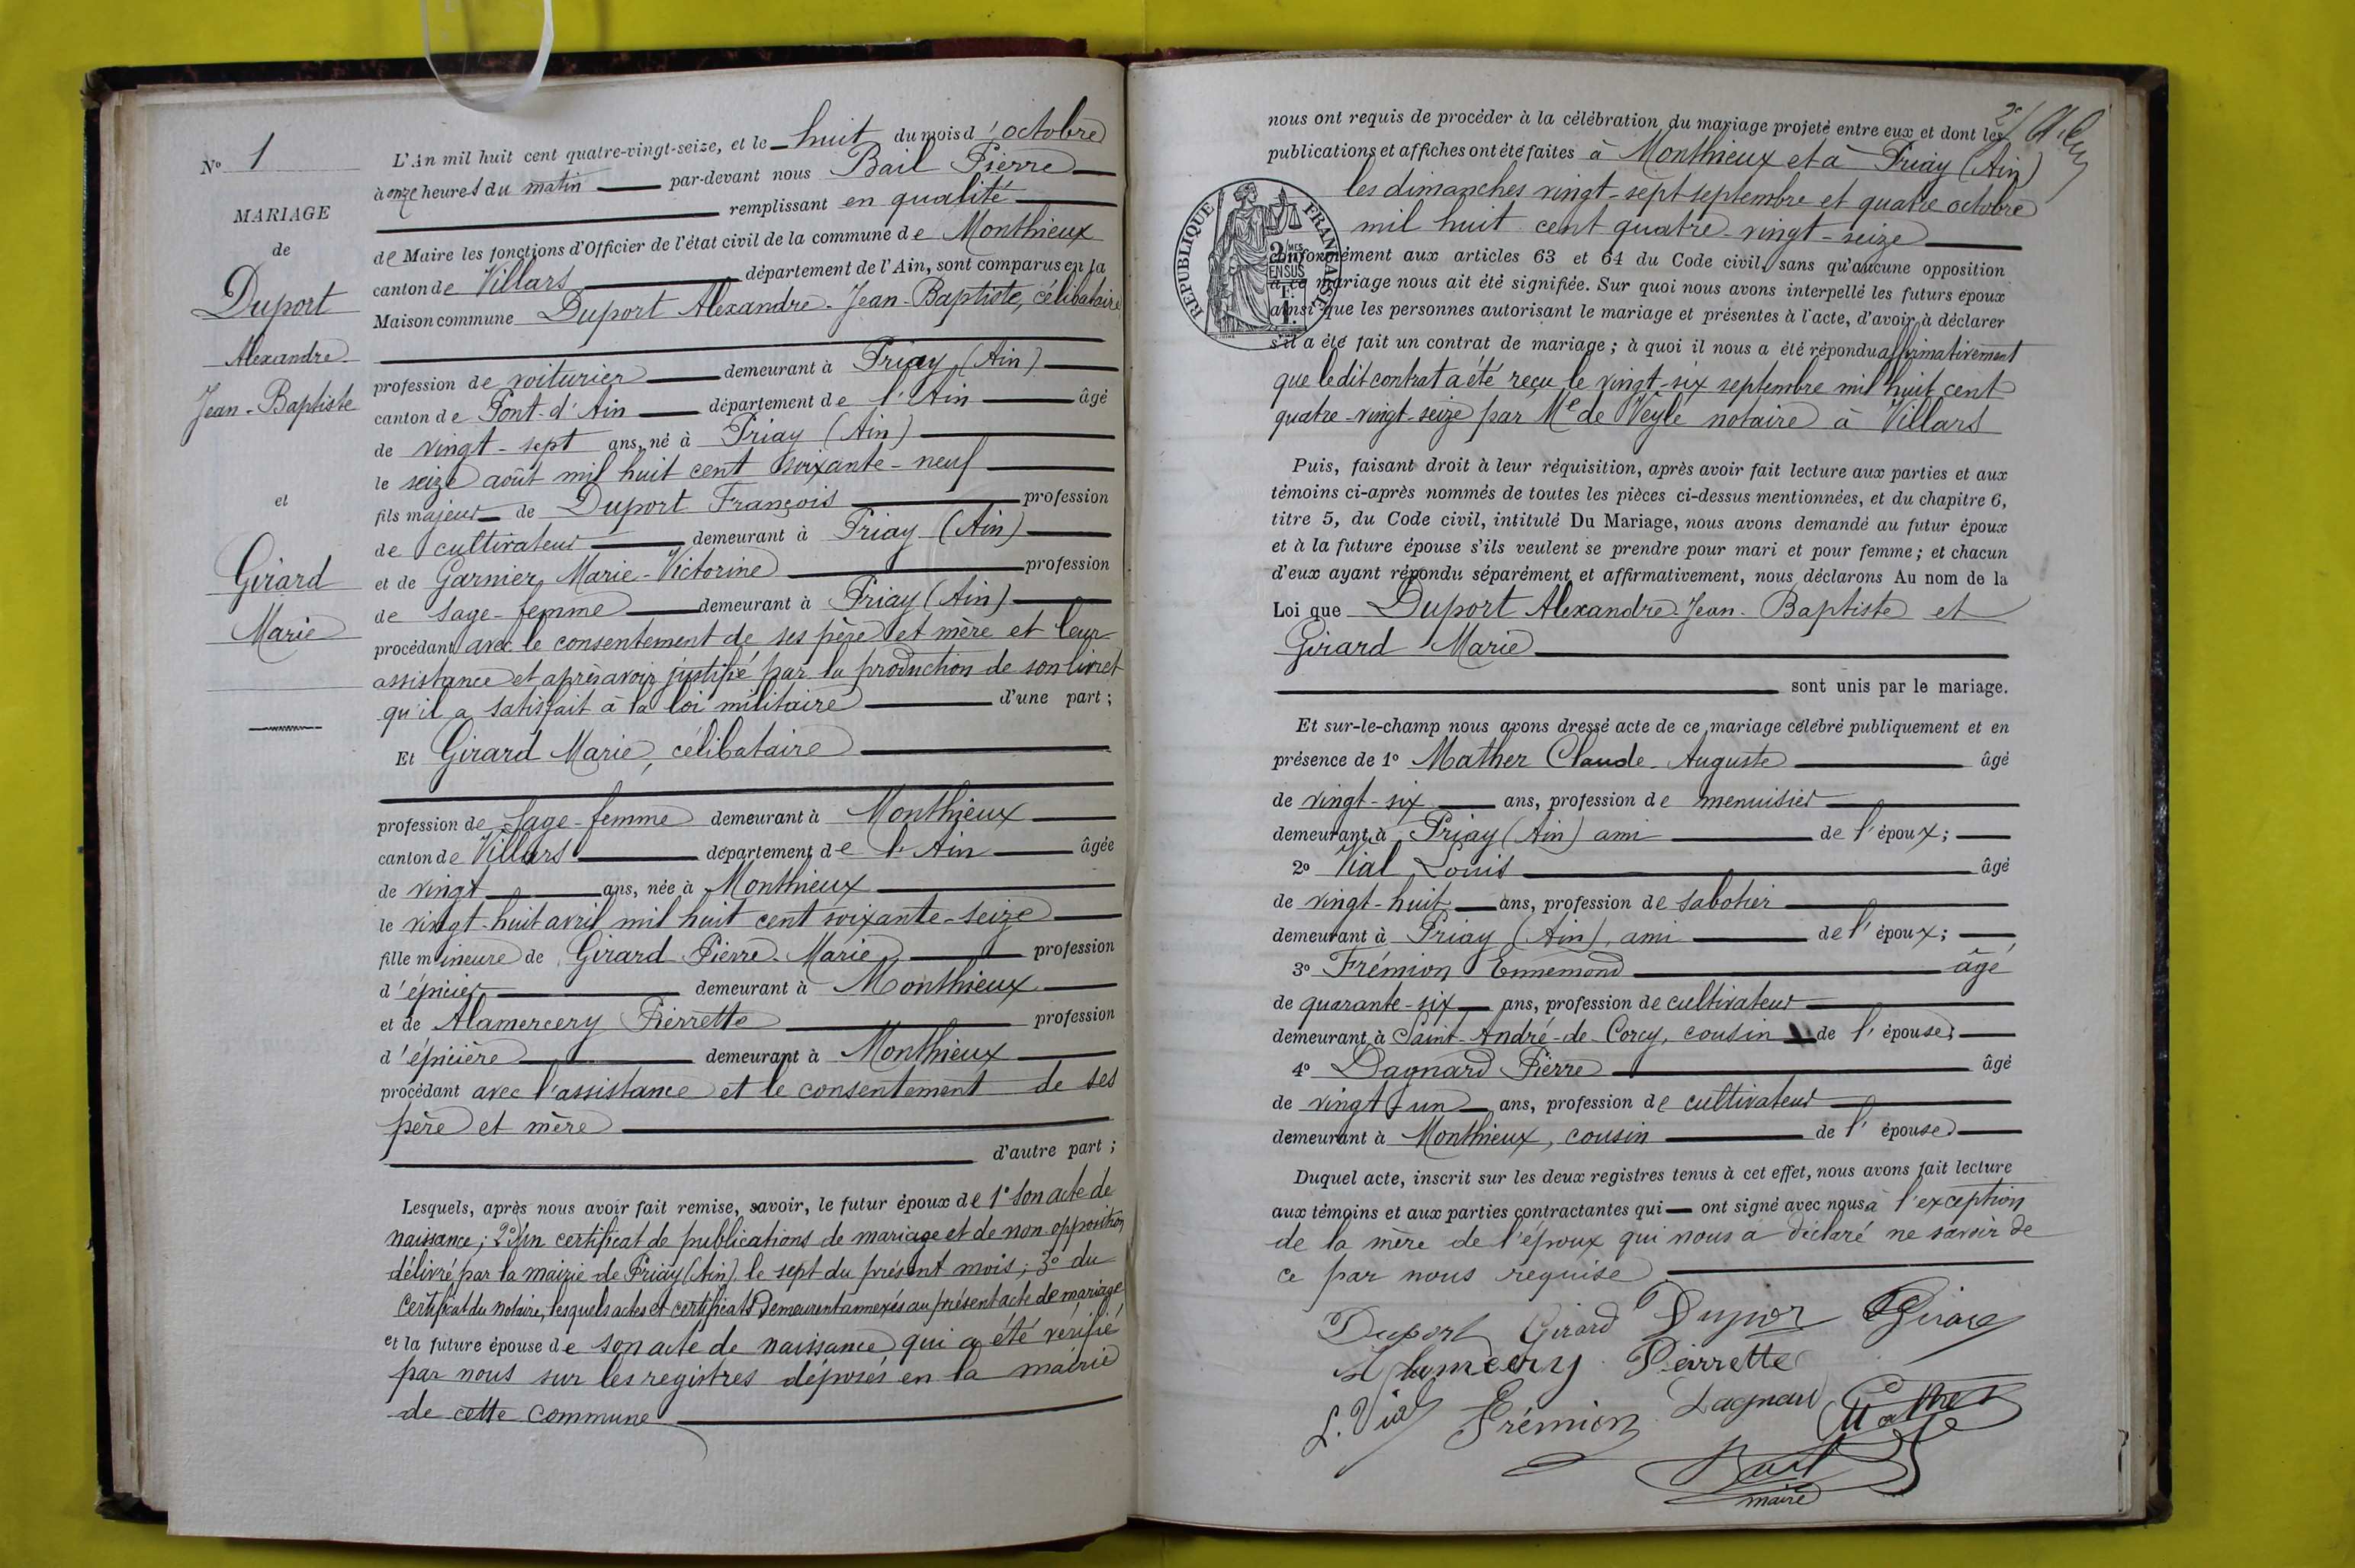 N° 1
MARIAGE
de
Duport
Alexandre
Jean-Baptiste
et
Girard
Marie
L'An mil huit cent quatre-vingt-seize, et le huit du mois d'octobre
à onze heures du matin par-devant nous Bail Pierre
remplissant en qualité
de Maire les fonctions d'Officier de l'état civil de la commune de Monthieux
canton de Villars département de l'Ain, sont comparus en la
Maison commune Duport Alexandre-Jean-Baptiste, célibataire
profession de voiturier demeurant à Priay (Ain)
canton de Pont-d'Ain département de l'Ain âgé
de vingt-sept ans, né à Priay (Ain)
le seize août mil huit cent soixante-neuf
fils majeur de Duport François profession
de cultivateur demeurant à Priay (Ain)
et de Garnier Marie-Victorine profession
de sage-femme demeurant à Priay (Ain)
procédant avec le consentement de ses père et mère et leur
assistance et après avoir justifié par la production de son livret
qu'il a satisfait à la loi militaire d'une part ;
Et Girard Marie, célibataire
profession de sage-femme demeurant à Monthieux
canton de Villars département de l'Ain âgée
de vingt ans, née à Monthieux
le vingt-huit avril mil huit cent soixante-seize
fille mineure de Girard Pierre-Marie profession
d'épicier demeurant à Monthieux
et de Alamercery Pierrette profession
d'épicière demeurant à Monthieux
procédant avec l'assistance et le consentement de ses
père et mère
d'autre part ;
Lesquels, après nous avoir fait remise, savoir, le futur époux de 1° son acte de
naissance ; 2° un certificat de publications de mariage et de non-opposition
délivré par la mairie de Priay (Ain) le sept du présent mois ; 3° du
certificat du notaire, lesquels actes et certificats demeurent annexés au présent acte de mariage
et la future épouse de son acte de naissance qui a été vérifié
par nous sur les registres déposés en la mairie
de cette commune
nous ont requis de procéder à la célébration du mariage projeté entre eux et dont les
publications et affiches ont été faites à Monthieux et à Priay (Ain)
les dimanches vingt-sept septembre et quatre octobre
mil huit cent quatre-vingt-seize
RÉPUBLIQUE FRANÇAISE
2 MES
EN SUS
conformément aux articles 63 et 64 du Code civil, sans qu'aucune opposition
à ce mariage nous ait été signifiée. Sur quoi nous avons interpellé les futurs époux
ainsi que les personnes autorisant le mariage et présentes à l'acte, d'avoir à déclarer
s'il a été fait un contrat de mariage ; à quoi il nous a été répondu affirmativement
que le dit contrat a été reçu le vingt-six septembre mil huit cent
quatre-vingt-seize par Me de Veyle notaire à Villars
Puis, faisant droit à leur réquisition, après avoir fait lecture aux parties et aux
témoins ci-après nommés de toutes les pièces ci-dessus mentionnées, et du chapitre 6,
titre 5, du Code civil, intitulé Du Mariage, nous avons demandé au futur époux
et à la future épouse s'ils veulent se prendre pour mari et pour femme ; et chacun
d'eux ayant répondu séparément et affirmativement, nous déclarons Au nom de la
Loi que Duport Alexandre-Jean-Baptiste et
Girard Marie
sont unis par le mariage.
Et sur-le-champ nous avons dressé acte de ce mariage célébré publiquement et en
présence de 1° Mather Claude-Auguste âgé
de vingt-six ans, profession de menuisier
demeurant à Priay (Ain) ami de l'époux ;
2° Vial Louis âgé
de vingt-huit ans, profession de sabotier
demeurant à Priay (Ain), ami de l'époux ;
3° Frémion Ennemond âgé
de quarante-six ans, profession de cultivateur
demeurant à Saint-André-de-Corcy, cousin de l'épouse ;
4° Dagnard Pierre âgé
de vingt-un ans, profession de cultivateur
demeurant à Monthieux, cousin de l'épouse
Duquel acte, inscrit sur les deux registres tenus à cet effet, nous avons fait lecture
aux témoins et aux parties contractantes qui ont signé avec nous à l'exception
de la mère de l'époux qui nous a déclaré ne savoir de
ce par nous requise
Duport Girard Dupor Girard
Alamercery Pierrette
L. Vial Frémion Dagnard Mather
Bail
maire